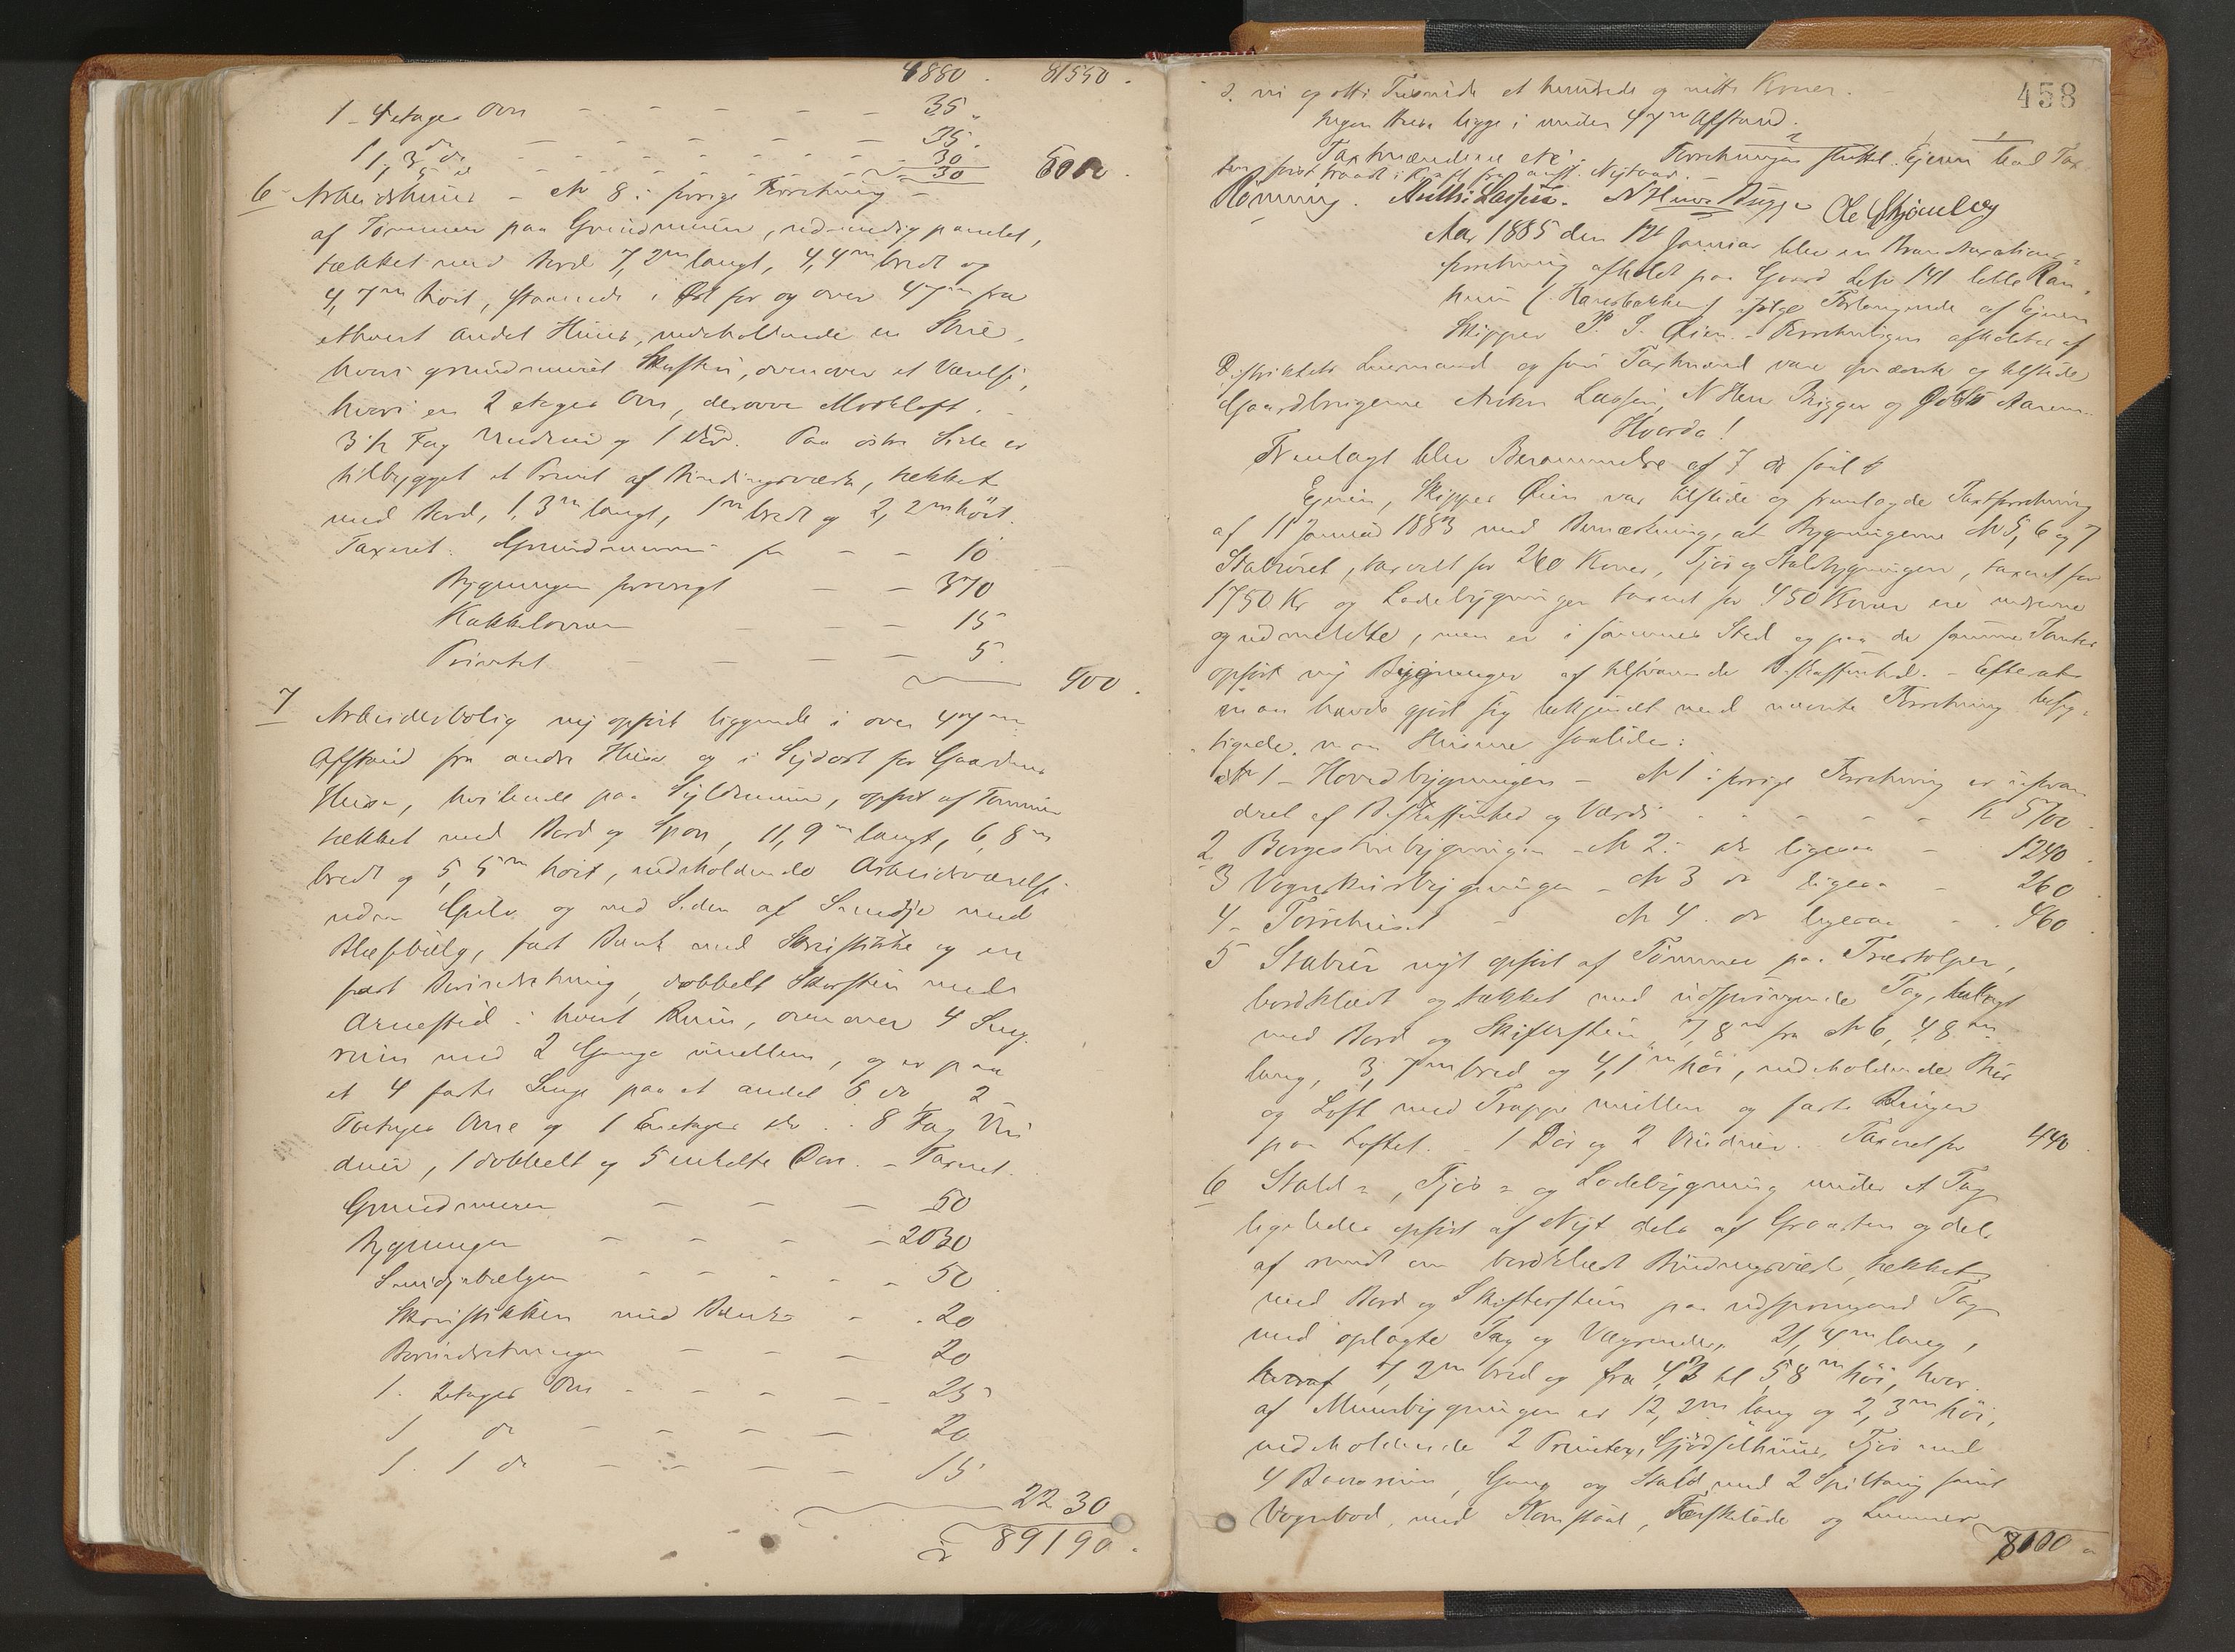 4880. 81550.
1 4 etages Ovn - - - - - 35.
1 do - - - - - 35.
1, 3 do - - - - - 30
5000.
6 Arbeidshuus - No 8 i forrige Forretning -
af Tømmer paa Grundmuur, udvendig panelet,
tækket med Bord 7,2m langt, 4,4m bredt og
4,7m høit, staaende i Øst for og over 47m fra
ethvert andet Huus, indeholdende en Stue,
hvori grundmuret Skorsten, ovenover et Værelse,
hvori en 2 etages Ovn, derover Mørkloft. -
3 1/2 Fag Vinduer og 1 Dør. Paa østre Side er
tilbygget et Privet af Bindingsværk, tækket
med Bord, 1,3m langt, 1m bredt og 2,2m høit.
Taxeret: Grundmuren for - - 10
Bygningen forøvrigt - - 370
Kakkelovnen - - - 15
Privetet - - - 5.
400.
7 Arbeiderbolig ny opført liggende i over 47m
Afstand fra andre Huse og i Sydost for Gaardens
Huse, hvilende paa Syldmuur, opført af Tømmer
tækket med Bord og Spon, 11,9m langt, 6,8m
bredt og 5,5m høit, indeholdende Arbeidsværelse
uden og ved Siden af Smidje med
Blæsebælg, fast Bænk med Skruestikke og en
fast Borindretning, dobbelt Skorsten med
Arnested i hvert Rum, ovenover 4 Senge
rum med 2 Gange imellem, og er paa
et 4 faste Senge paa et andet 3 do, 2
Toetages Ovne og 1 Enetages do. - 8 Fag Vin
duer, 1 dobbelt og 5 enkelte Døre. - Taxeret.
Grundmuren - - - 50
Bygningen - - - - 2030
Smidjebælgen - - - - - 50
Skruestikken med Bænk - - 20
Borindretningen - - - 20
1. 2etages Ovn - - - - 25
1 do - - - - 20
1. 1 do - - - - 15
2230
89190.
458
ni og otti Tusinde et hundrede og nitti Kroner.
Ingen Huse ligge i under 47m Afstand.
Taxtmændene Forretningen sluttet. Ejeren
Rønning. Anths: Lassen. N Hensv Bugge Ole Skjønberg
Aar 1885 den 12te Januar blev en Brandtaxations-
forretning afholdt paa Gaard Lnr 141 lille Ran
heim (Hansbakken) ifølge Forlangende af Ejeren
Skipper P. S. Øien. - Forretningen afholdtes af
Distriktets Lensmand og som Taxtmænd vare nævnte og tilstede
Gaardbrugerne Anders Lassen, N Hensv Bugge og
Hvorda!
Fremlagt blev Berammelse af 7 ds saalt
Ejeren, Skipper Øien var tilstede og fremlagde Taxtforretning
af 11 Januar 1883 med Bemærkning, at Bygningerne No 5, 6 og 7
Stabburet, taxeret for 260 Kroner, Fjøs og Staldbygningen, taxeret for
1750 Kr og Ladebygningen taxeret for 450 Kroner ere nedrevne
og udmeldte, men er i sammes Sted og paa de samme Tomter
opført ny Bygninger af tilsvarende Beskaffenhed. - Efterat
man havde gjort sig bekjendt med nævnte Forretning besig-
tigede man Husene saaledes:
No 1 - Hovedbygningen - No 1 i forrige Forretning er uforan
dret af Beskaffenhed og Værdi - - - - - Kr 5700.
2 Borgestuebygningen - No 2 - do ligesaa - 1240.
3 Vognskuurbygningen - No 3 do ligesaa - 260.
4 - Tørrehuset - No 4. do ligesaa - 460.
5 Stabuur nyt opført af Tømmer paa Træstolper,
bordklædt og tækket med udspringende Tag, belagt
med Bord og Skifersten, 7,8m fra No 6, 4,8m
lang, 3,7m bred og 4,1m høi, indeholdende Bur
og Loft med Trappe imellem og faste Binger
paa Loftet. - 1 Dør og 2 Vinduer. Taxeret for 440.
6 Stald-, Fjøs- og Ladebygning under et Tag
ligeledes opført af Nyt dels af Graasten og dels
af rundt om bordklædt Bindingsværk, tækket
med Bord og Skifersten paa udspringende Tag
med oplagte Tag og Vægrender, 21,4m lang,
7,2m bred og fra 4,3 til 5,8m høi, hvor-
af Muurbygningen er 12,2m lang og 2,3m høi,
indeholdende 2 Priveter, Gjødselhuus, Fjøs med
4 Baasrum, Gang og Stald med 2 Spiltoug samt
Vognbod, med Kornstaal, Tærskelade og Lemmer
8100